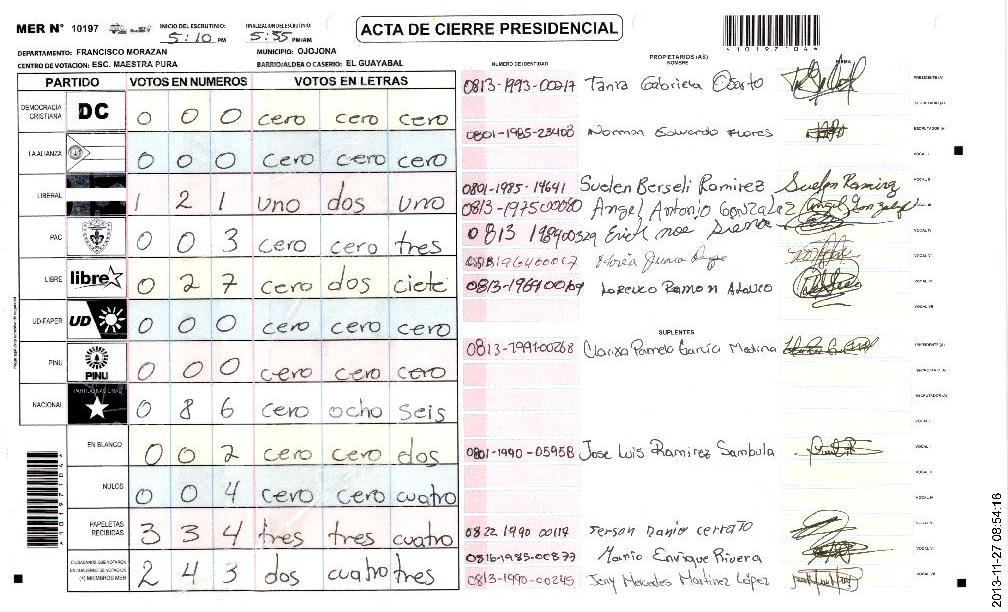 MER N° 10197
INICIO DEL ESCRUTINIO: 5:10 PM
FINALIZACION DEL ESCRUTINIO: 5:55 PM/AM
ACTA DE CIERRE PRESIDENCIAL
*10197104*
DEPARTAMENTO: FRANCISCO MORAZAN
MUNICIPIO: OJOJONA
CENTRO DE VOTACION: ESC. MAESTRA PURA
BARRIO/ALDEA O CASERIO: EL GUAYABAL
PARTIDO VOTOS EN NUMEROS VOTOS EN LETRAS
DEMOCRACIA CRISTIANA DC 0 0 0 cero cero cero
LA ALIANZA 0 0 0 cero cero cero
LIBERAL 1 2 1 uno dos uno
PAC 0 0 3 cero cero tres
LIBRE libre 0 2 7 cero dos ciete
UD-FAPER UD 0 0 0 cero cero cero
PINU PINU 0 0 0 cero cero cero
NACIONAL PARTIDO NACIONAL 0 8 6 cero ocho seis
EN BLANCO 0 0 2 cero cero dos
NULOS 0 0 4 cero cero cuatro
PAPELETAS RECIBIDAS 3 3 4 tres tres cuatro
CIUDADANOS QUE VOTARON EN CUADERNO DE VOTACION (+) MIEMBROS MER 2 4 3 dos cuatro tres
*10197104*
NUMERO DE IDENTIDAD
PROPIETARIOS (AS)
NOMBRE
FIRMA
0813-1993-00217 Tania Gabriela PRESIDENTE (A)
SECRETARIO (A)
0801-1985-23408 Norman Edwardo Flores ESCRUTADOR (A)
VOCAL I
0801-1985-14641 Suelen Berseli Ramirez Suelen Ramirez VOCAL II
0813-1975-00080 Angel Antonio Gonzalez Angel Gonzalez VOCAL III
0813 198900329 Erick noe VOCAL IV
VOCAL V
0813-1969-00169 Lorenzo Ramon VOCAL VI
VOCAL VII
SUPLENTES
0813-1991-00268 Clarixa Pamela García Medina PRESIDENTE (A)
SECRETARIO (A)
ESCRUTADOR (A)
VOCAL I
0801-1990-05958 Jose Luis Ramirez Sambula VOCAL II
VOCAL III
VOCAL IV
0822 1990 00119 Jerson Danio cerrato VOCAL V
0816-1985-00877 Mario Enrique Rivera VOCAL VI
0813-1990-00245 Jeny Mercedes Martinez López VOCAL VII
2013-11-27 08:54:16